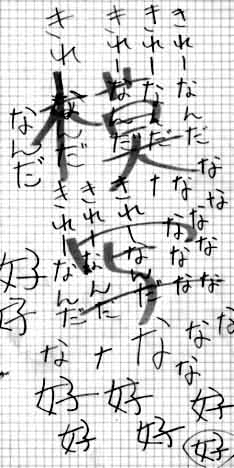 きれーなんだ
きれーなんだ
きれーなんだ
きれ
なんだ
なんだ
模写
きれーなんだ
きれーなんだ
きれーなんだ
な
な
な
な
な
な
な
な
な
な
な
な
な
な
好
好
好
好
好
好
好
好